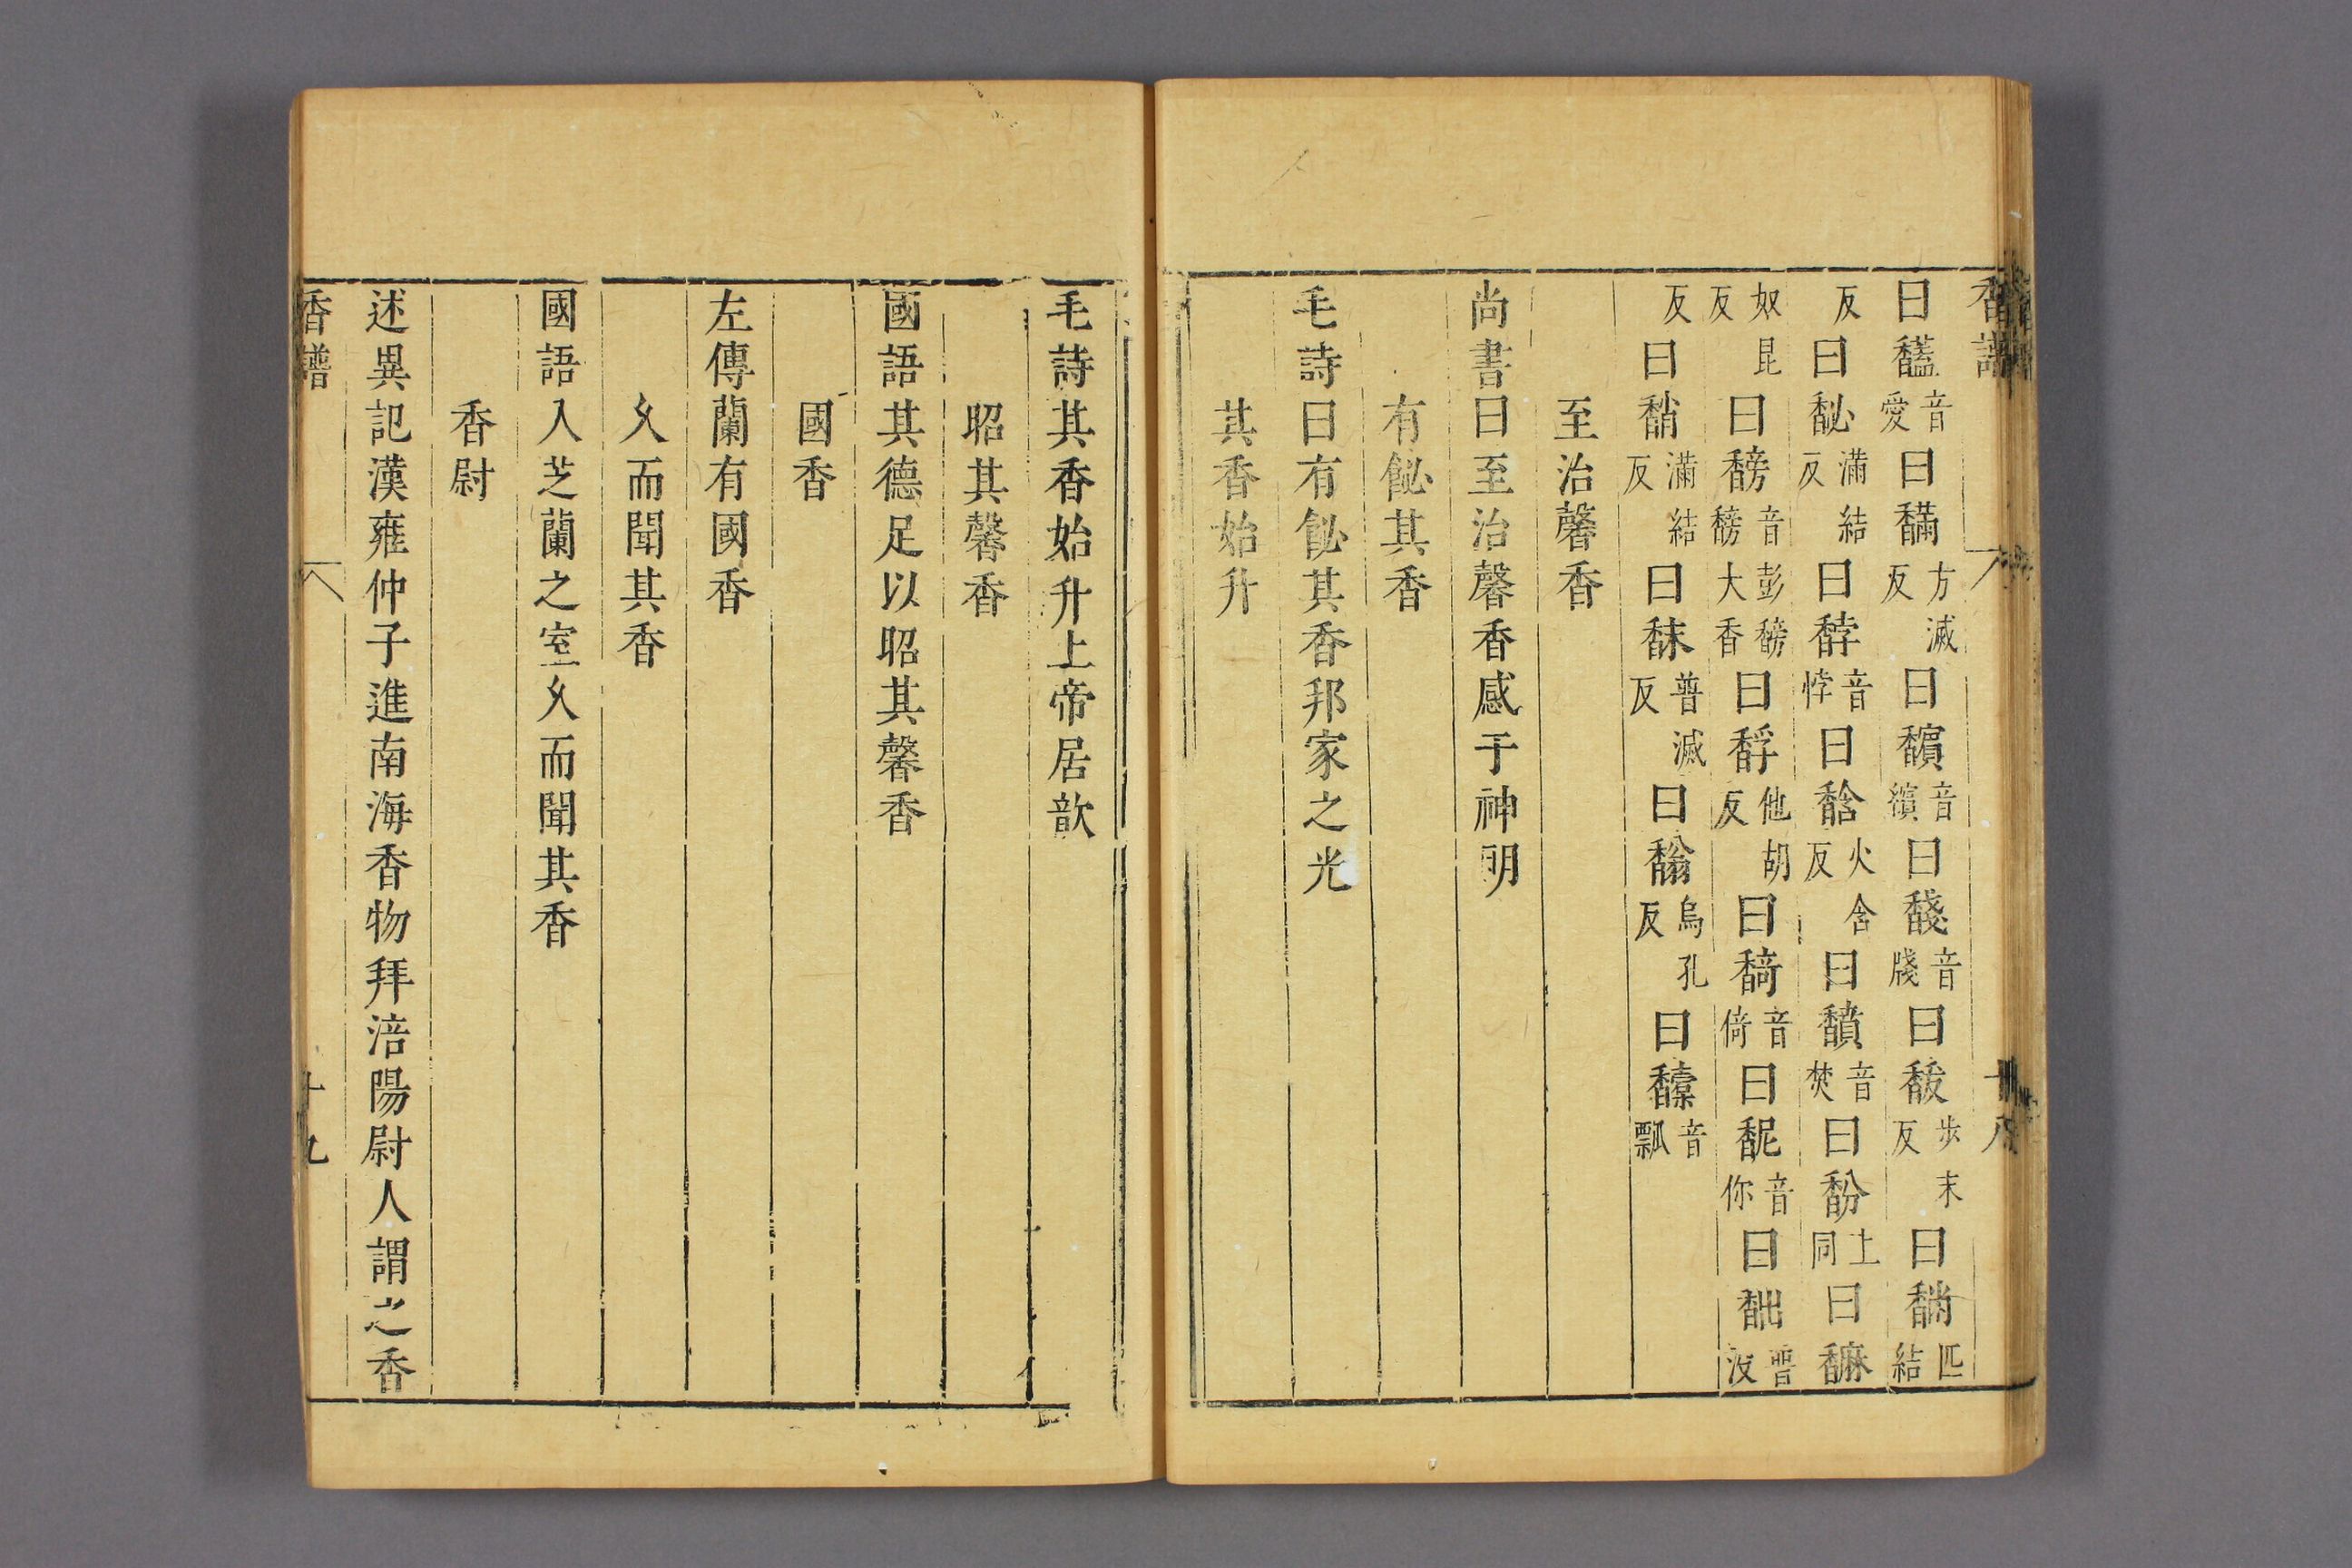 香譜 十八
曰馤音愛曰方滅反曰馪音繽曰馢音牋曰馛步末反曰匹結
反曰馝滿結反曰馞音悖曰馠火含反曰馩音焚曰馚上同曰
奴昆反曰音彭大香曰他胡反曰音倚曰馜音你曰普沒
反曰滿結反曰普滅反曰烏孔反曰音瓢
至治馨香
尚書曰至治馨香感于神明
有飶其香
毛詩曰有飶其香邦家之光
其香始升
毛詩其香始升上帝居歆
昭其馨香
國語其德足以昭其馨香
國香
左傳蘭有國香
久而聞其香
國語入芝蘭之室久而聞其香
香尉
述異記漢雍仲子進南海香物拜涪陽尉人謂之香
香譜 十九